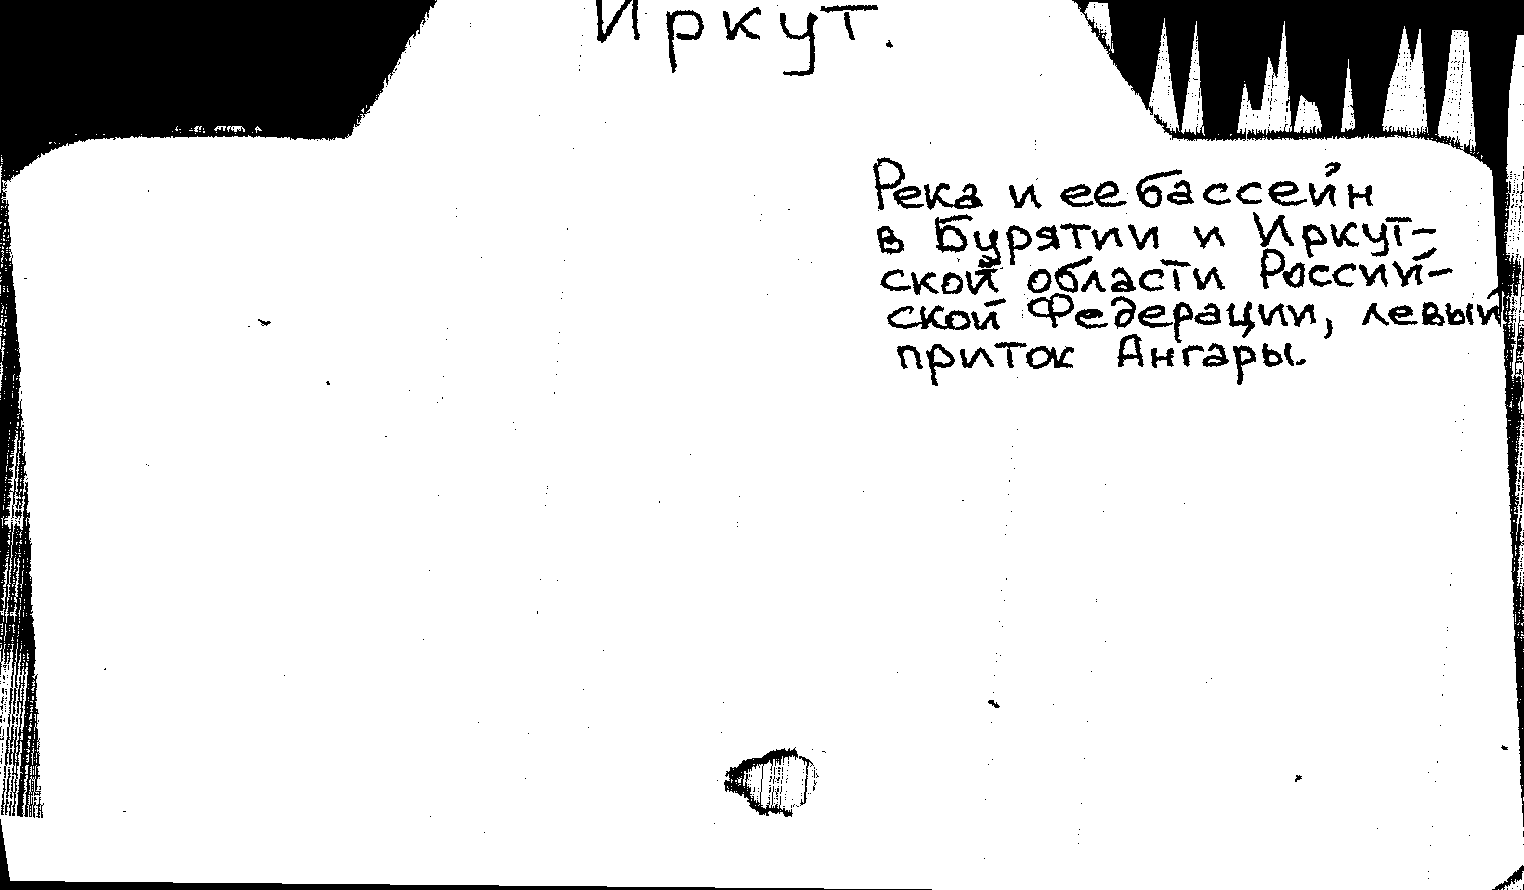 Иркут.
Река и ее бассейн
в Бурятии и Иркут-
ской области Россий-
ской Федерации, левый
приток Ангары.